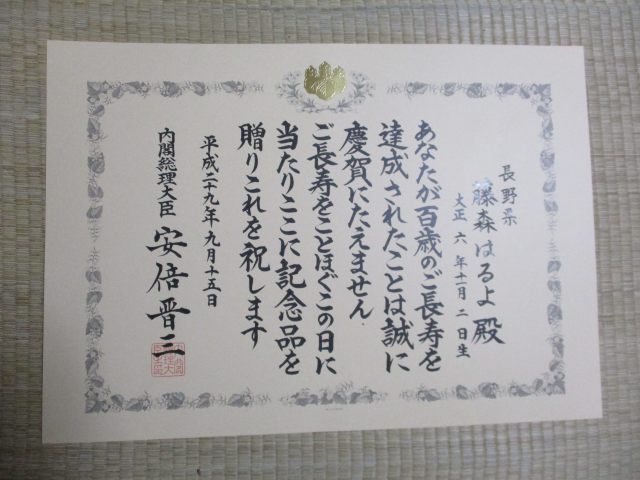 長野県
藤森はるよ 殿
大正 六 年十一月 二 日生
あなたが百歳のご長寿を
達成されたことは誠に
慶賀にたえません
ご長寿をことほぐこの日に
当たりここに記念品を
贈りこれを祝します
平成二十九年九月十五日
内閣総理大臣 安倍晋三